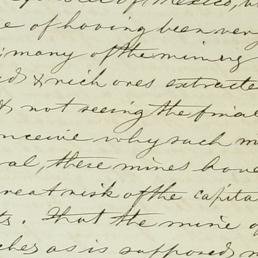 of Mexico, w
e of having been very
many of the mining
& rich ores extracte
& not seeing the final
nceive why such m
al, these mines have
reat risk of the capita
ts. That the mine of
ches as is supposed m